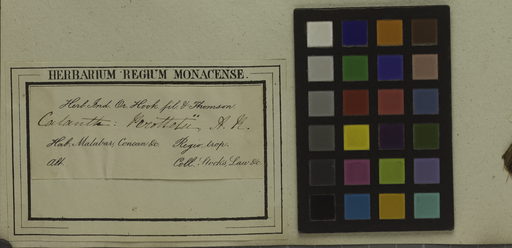 HERBARIUM REGIUM MONACENSE.
Herb. Ind. Or. Hook fil. & Thomson
H. N.
Hab. Malabar, Concan &c. Regio trop.
Alt. Coll. Stocks, Law &c.